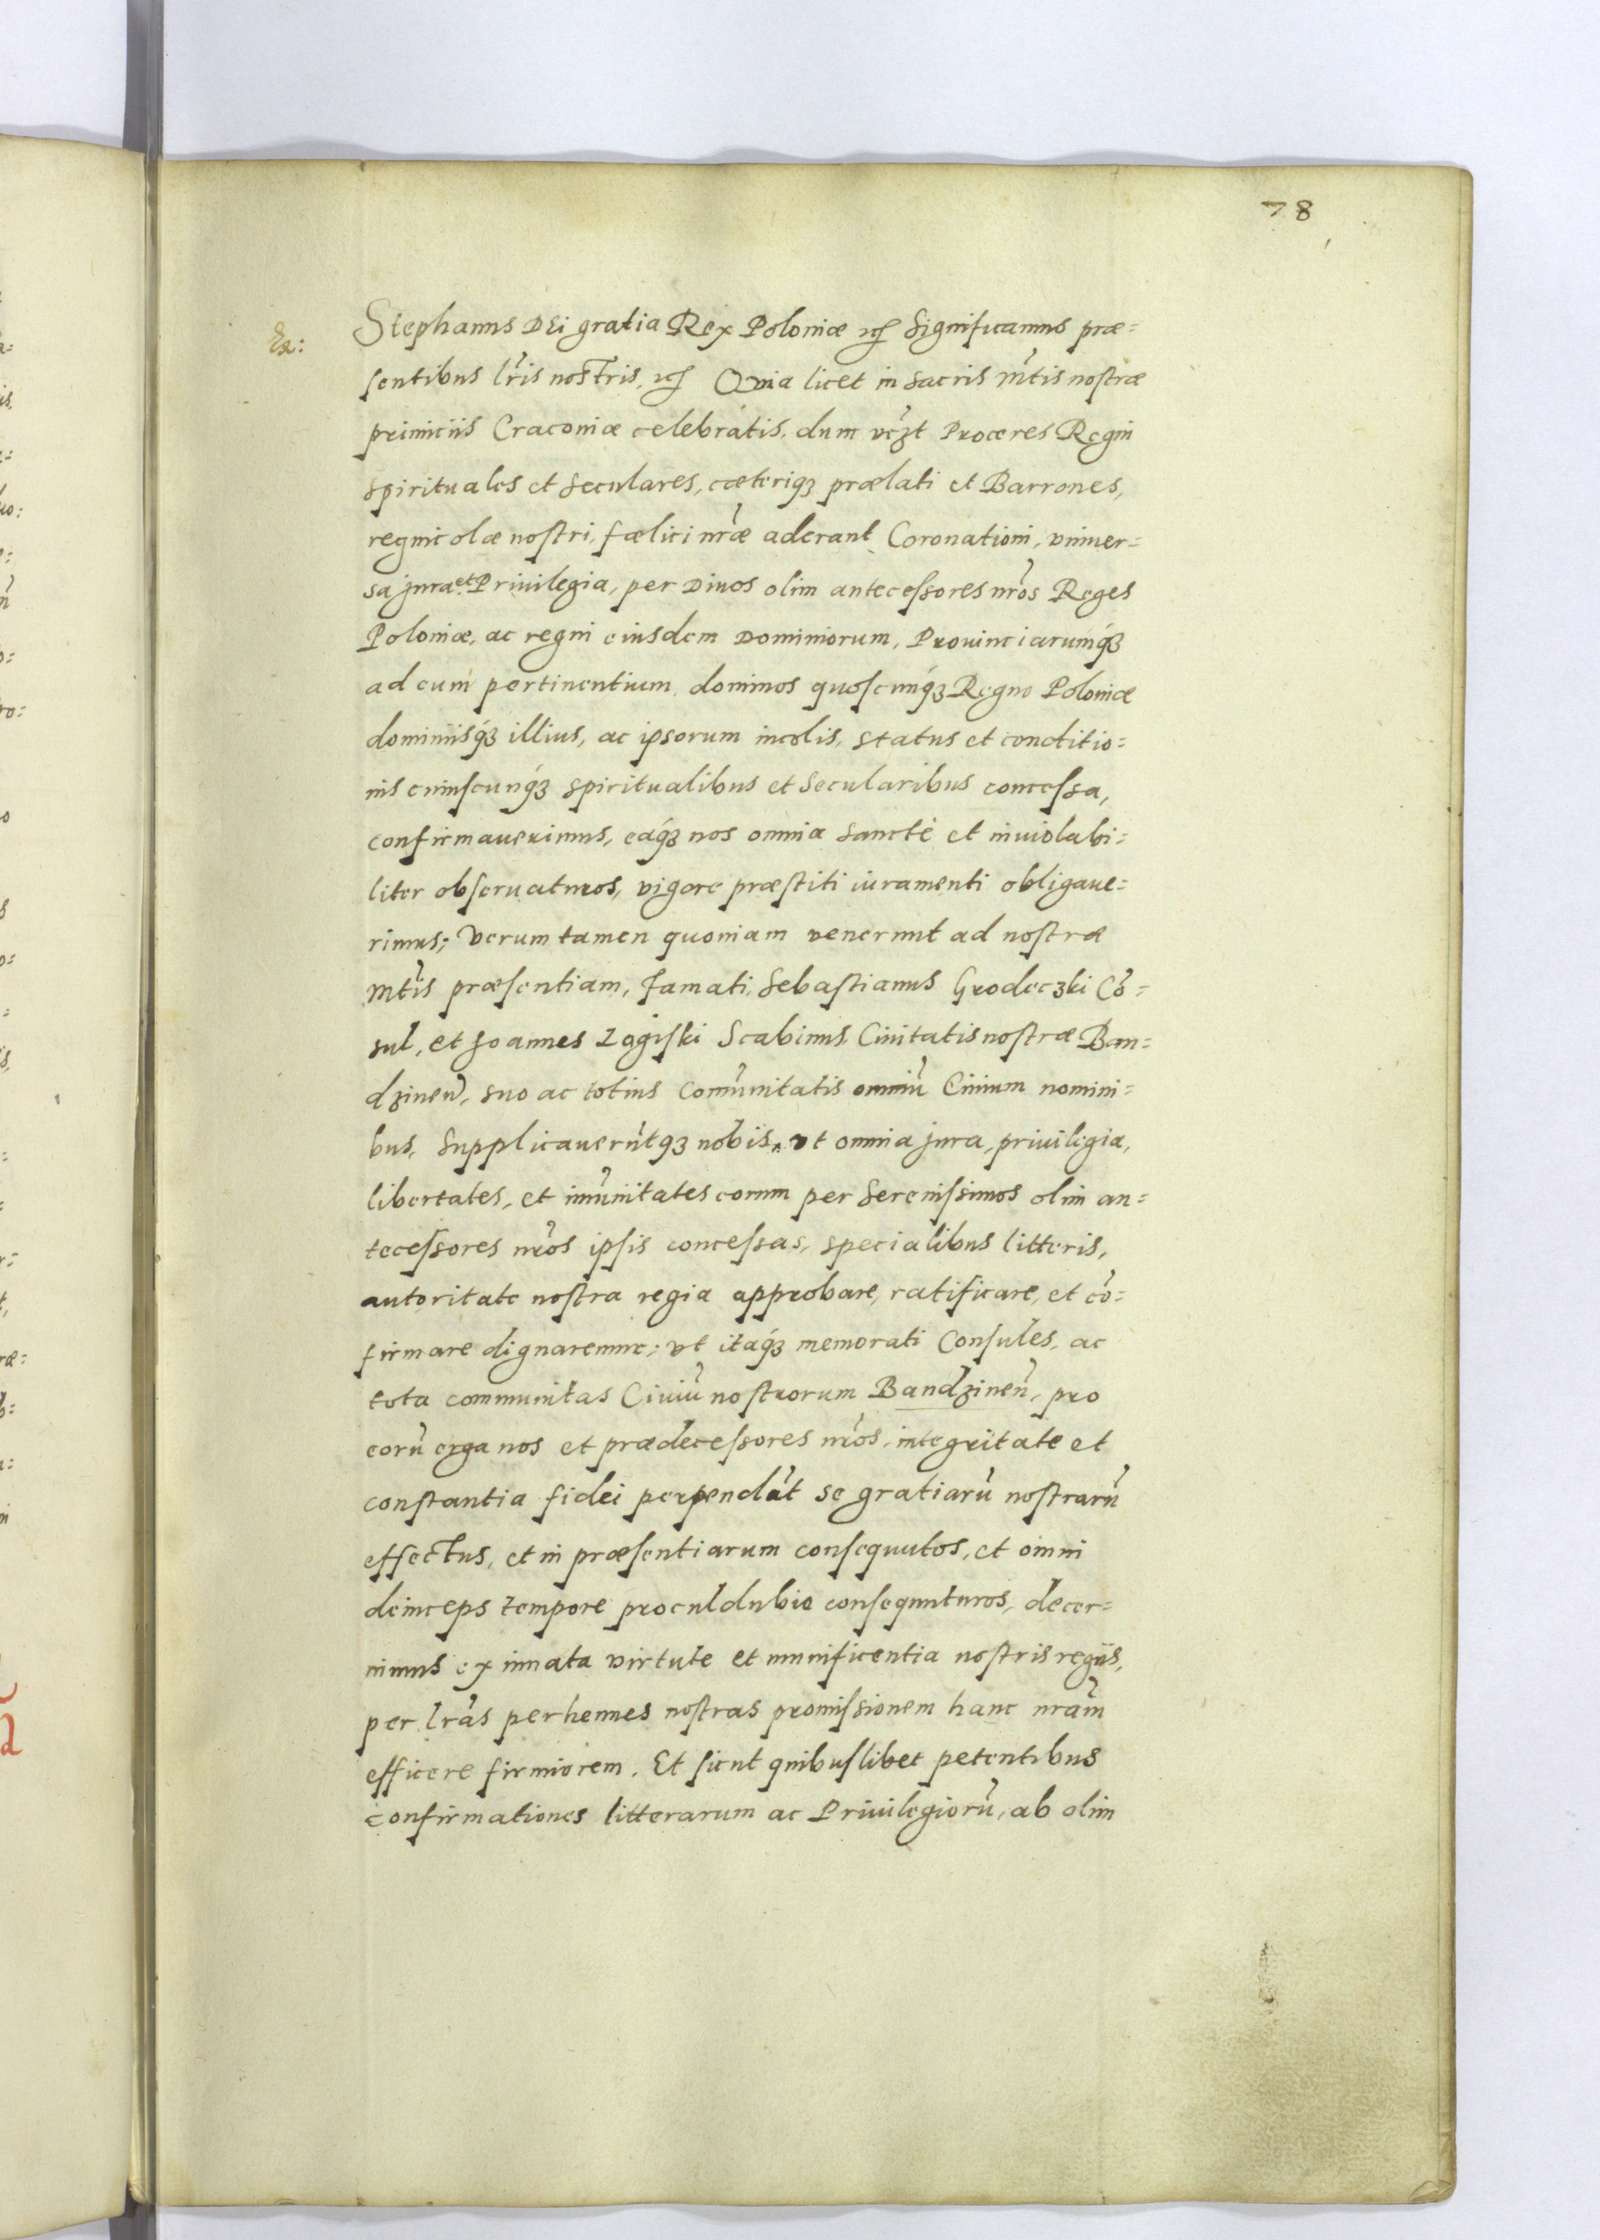 78
Stephanus DEi gratia Rex Poloniæ etc Significamus præ=
sentibus lris nostris, etc Quia licet in sacris Mtis nostræ
primiciis Cracoviæ celebratis, dum vczt Proceres Regni
spirituales et seculares, cæteriqz prælati et Barrones,
regnicolæ nostri, fælici nræ aderant Coronationi, univer=
sa jura et Privilegia, per Divos olim antecessores nros Reges
Poloniæ, ac regni eiusdem Dominiorum, Provinciarumqz
ad eum pertinentium dominos quoscunqz Regno Poloniæ
dominiisqz illius, ac ipsorum incolis, status et conditio=
nis cuiuscunqz spiritualibus et secularibus concessa,
confirmaverimus, eaqz nos omnia sanctè et inviolabi=
liter observaturos, vigore præstiti iuramenti obligave=
rimus; Verum tamen quoniam venerunt ad nostræ
Mtis præsentiam, famati, Sebastianus Grodeczki Cō=
sul, et Joannes Zggiski Scabinus Civitatis nostræ Ban=
dzinen, suo ac totius Comunitatis omniū Civium nomini=
bus, Supplicaverūtqz nobis, vt omnia jura, privilegia,
libertates, et imūnitates eorum per Serenissimos olim an=
tecessores nros ipsis concessas, specialibus litteris,
autoritate nostra regia approbare, ratificare, et cō=
firmare dignaremur; vt itaqz memorati Consules, ac
tota communitas Civiū nostrorum Bandzinen, pro
eorū erga nos et prædecessores nros, integritate et
constantia fidei perpendāt se gratiarū nostrarū
effectus, et in præsentiarum consequutos, et omni
deinceps tempore proculdubio consequuturos, decer=
nimus ex innata virtute et munificentia nostris regiis,
per lras perhennes nostras promissionem hanc nram
efficere firmiorem. Et sicut quibuslibet petentibus
confirmationes litterarum ac Privilegiorū, ab olim